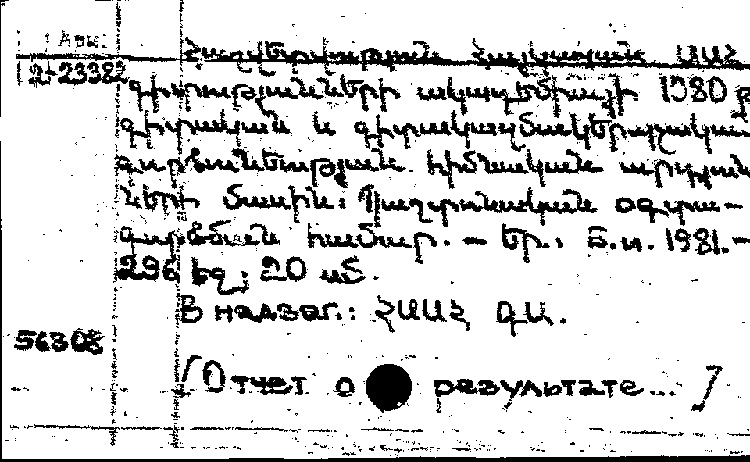 Арм.
Հաշվետվություն Հայկական ՍՍՀ
2-23382
գիտությունների ակադեմիայի 1980 թ
գիտական և գիտակազմակերպչական
գործունեության հիմնական արդյուն
ների մասին: Պաշտոնական օգտա-
գործման համար. - Եր., Б. и. 1981.-
296 էջ; 20 սմ.
В надзаг.: ՀՍՍՀ ԳԱ.
56308
[Отчет о результате... ]